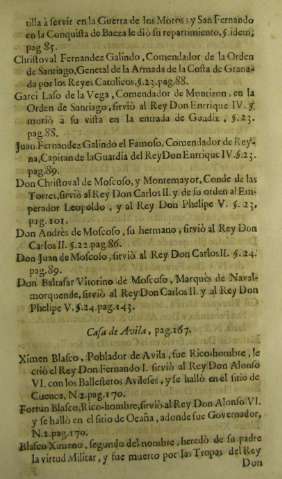 tilla à servir en la Guerra de los Moros: y San Fernando
en la Conquista de Baeza le diò su repartimiento, §. idem,
pag. 85.
Christoval Fernandez Galindo, Comendador de la Orden
de Santiago, General de la Armada de la Costa de Grana-
da por los Reyes Catolicos, §. 23. pag. 88.
Garci Laso de la Vega, Comendador de Montizon, en la
Orden de Santiago, sirviò al Rey Don Enrrique IV. y
muriò à su vista en la entrada de Guadix, §. 23.
pag. 88.
Juan Fernandez Galindo el Famoso, Comendador de Rey-
na, Capitan de la Guardia del Rey Don Enrique IV. §. 23.
pag. 89.
Don Christoval de Moscoso, y Montemayor, Conde de las
Torres, sirviò al Rey Don Carlos II. y de su orden al Em-
perador Leopoldo, y al Rey Don Phelipe V. §. 23.
pag. 101.
Don Andrès de Moscoso, su hermano, sirviò al Rey Don
Carlos II. §. 22. pag. 86.
Don Juan de Moscoso, sirviò al Rey Don Carlos II. §. 24.
pag. 89.
Don Baltasar Vitorino de Moscoso, Marquès de Naval-
morquende, sirviò al Rey Don Carlos II. y al Rey Don
Phelipe V. §. 24. pag. 143.
Casa de Avila, pag. 167.
Ximen Blasco, Poblador de Avila, fue Rico-hombre, le
criò el Rey Don Fernando I. sirviò al Rey Don Alonso
VI. con los Ballesteros Avileses, y se hallò en el sitio de
Cuenca, N. 2. pag. 170.
Fortun Blasco, Rico-hombre, sirviò al Rey Don Alonso VI.
y se hallò en el sitio de Ocaña, adonde fue Governador,
N. 2. pag. 170.
Blasco Ximeno, segundo del nombre, heredò de su padre
la virtud Militar, y fue muerto por las Tropas del Rey
Don